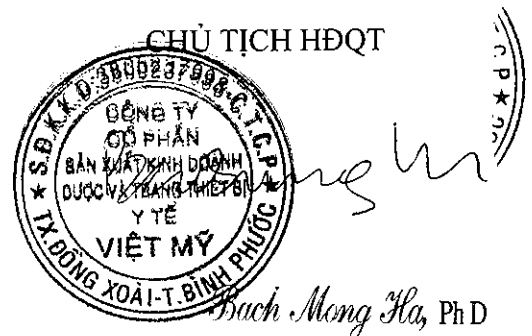 CHỦ TỊCH HĐQT
S.Đ.K.K.D:3800237998-C.T.C.P
CÔNG TY
CỔ PHẦN
SẢN XUẤT KINH DOANH
DƯỢC VÀ TRANG THIẾT BỊ
Y TẾ
VIỆT MỸ
TX.ĐỒNG XOÀI-T.BÌNH PHƯỚC
C.P
Bach Mong Ha, Ph D